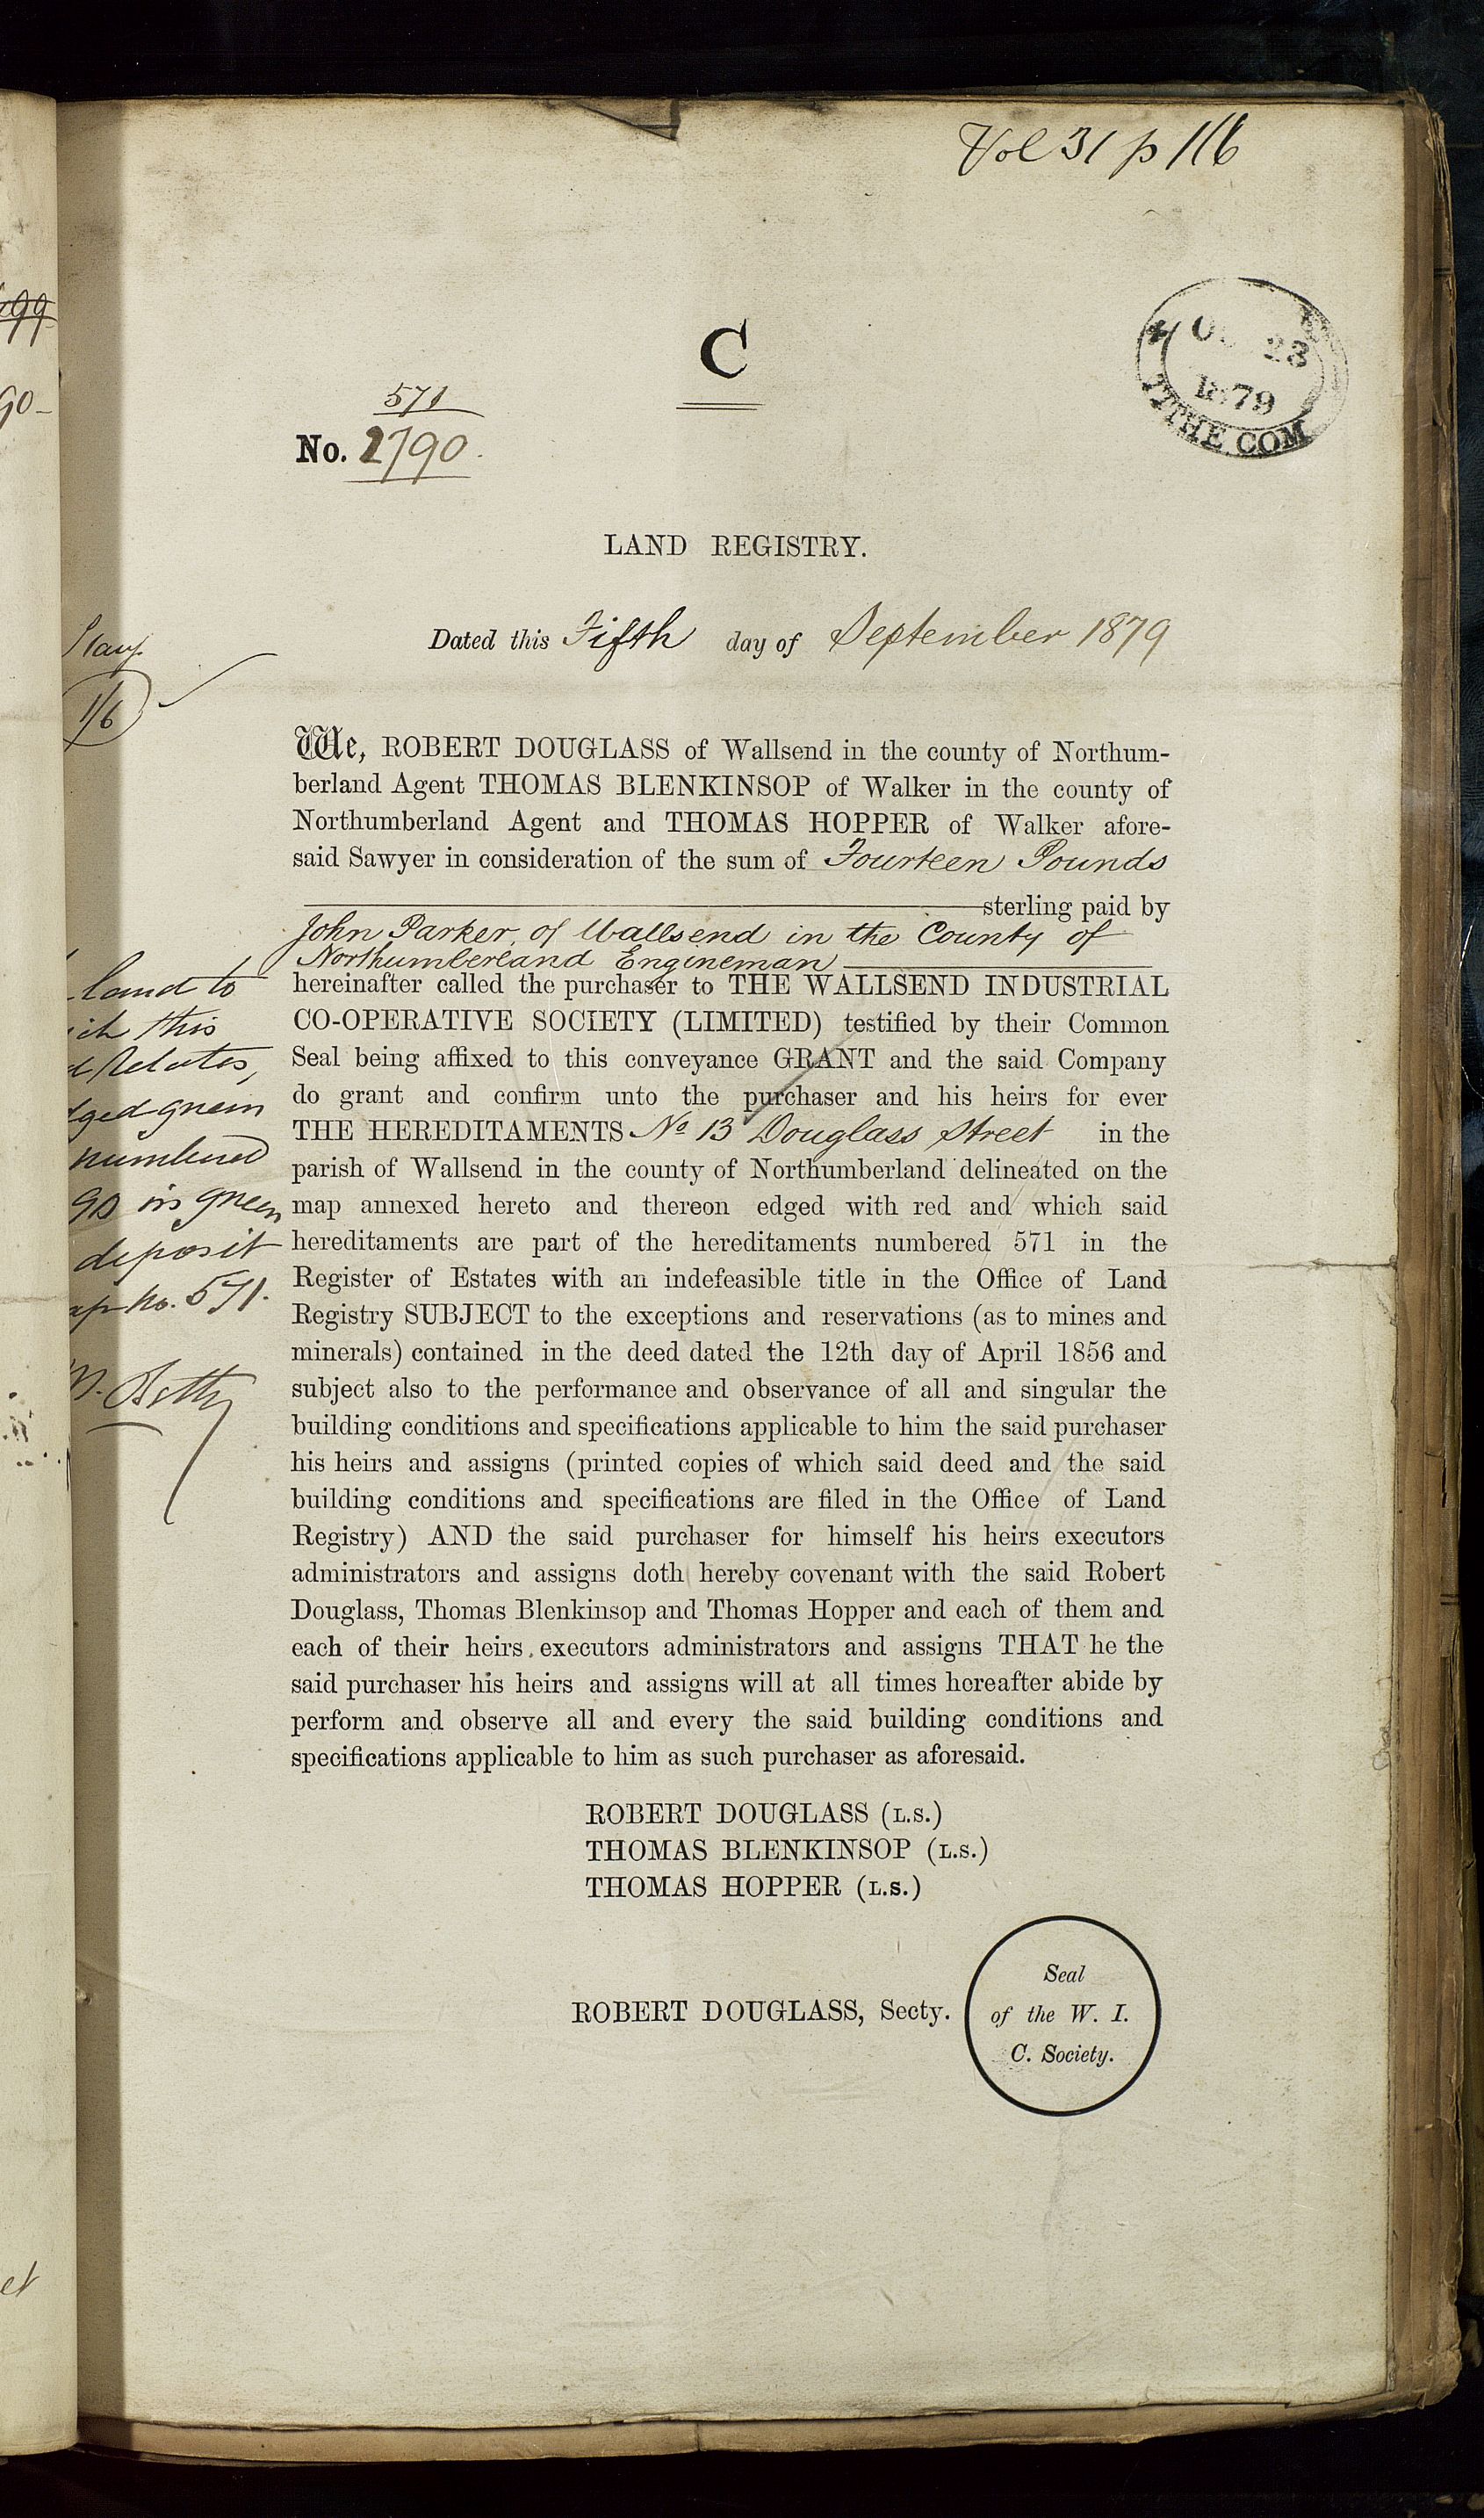 Vol 31 p 116
C
OC 23
1879
TITHE COM
571
No. 2790.
LAND REGISTRY.
Dated this Fifth day of September 1879
1/6
We, ROBERT DOUGLASS of Wallsend in the county of Northum-
berland Agent THOMAS BLENKINSOP of Walker in the county of
Northumberland Agent and THOMAS HOPPER of Walker afore-
said Sawyer in consideration of the sum of Fourteen Pounds
sterling paid by
John Parker, of Wallsend in the County of
Northumberland Engineman
hereinafter called the purchaser to THE WALLSEND INDUSTRIAL
CO-OPERATIVE SOCIETY (LIMITED) testified by their Common
Seal being affixed to this conveyance GRANT and the said Company
do grant and confirm unto the purchaser and his heirs for ever
THE HEREDITAMENTS No 13 Douglass Street in the
parish of Wallsend in the county of Northumberland delineated on the
map annexed hereto and thereon edged with red and which said
hereditaments are part of the hereditaments numbered 571 in the
Register of Estates with an indefeasible title in the Office of Land
Registry SUBJECT to the exceptions and reservations (as to mines and
minerals) contained in the deed dated the 12th day of April 1856 and
subject also to the performance and observance of all and singular the
building conditions and specifications applicable to him the said purchaser
his heirs and assigns (printed copies of which said deed and the said
building conditions and specifications are filed in the Office of Land
Registry) AND the said purchaser for himself his heirs executors
administrators and assigns doth hereby covenant with the said Robert
Douglass, Thomas Blenkinsop and Thomas Hopper and each of them and
each of their heirs executors administrators and assigns THAT he the
said purchaser his heirs and assigns will at all times hereafter abide by
perform and observe all and every the said building conditions and
specifications applicable to him as such purchaser as aforesaid.
ROBERT DOUGLASS (L.S.)
THOMAS BLENKINSOP (L.S.)
THOMAS HOPPER (L.S.)
ROBERT DOUGLASS, Secty.
Seal
of the W. I.
C. Society.
land to
this
relates,
green
numbered
90 in green
deposit
no. 571.